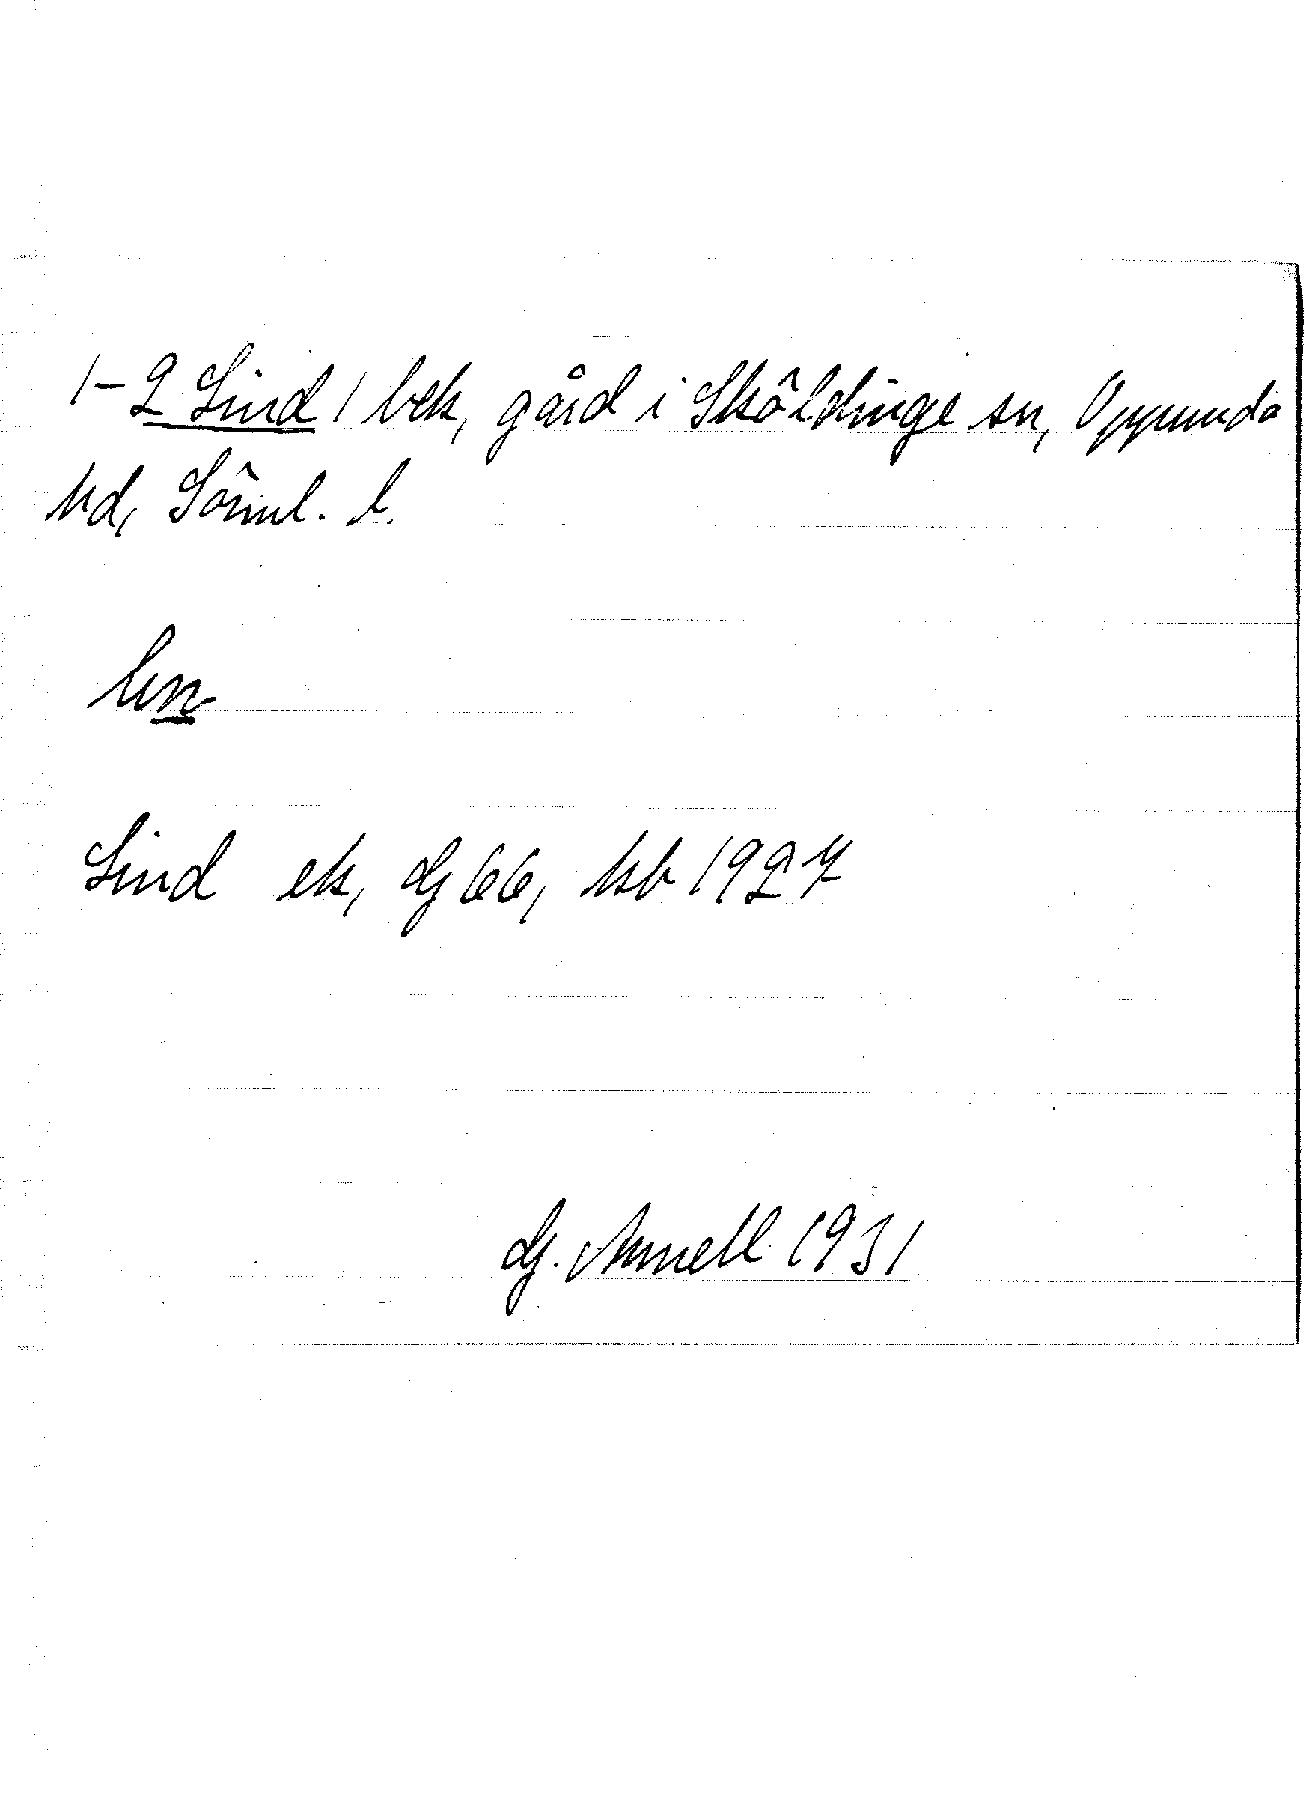 1-2 Lind 1 bek, gård i Sköldinge sn, Oppunda
hd, Söml. l.
lin
Lind ek, dj 66, hsb 1927
dj. Amnell 1931